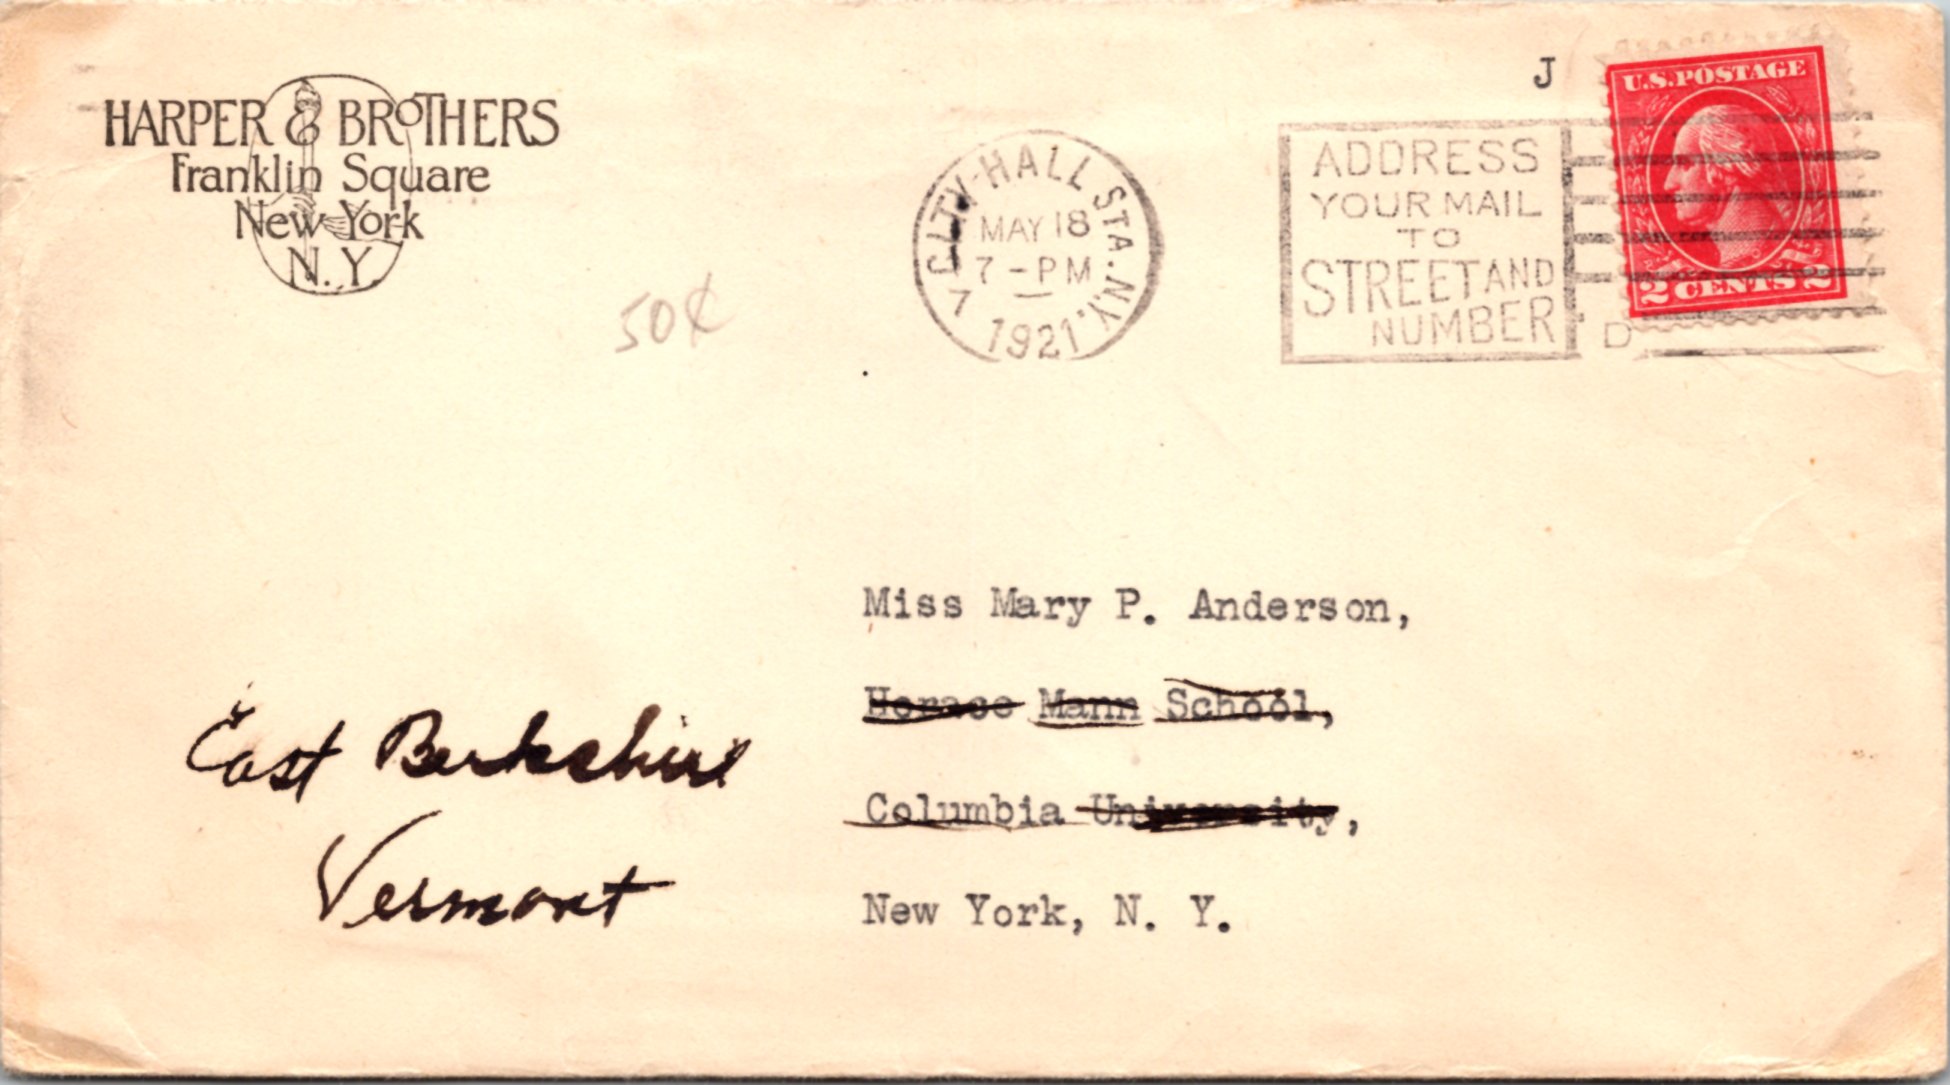 HARPER & BROTHERS
Franklin Square
New York
N.Y.
50¢
CITY-HALL STA. N.Y.
MAY 18
7-PM
7
1921
J
ADDRESS
YOUR MAIL
TO
STREET AND
NUMBER
D
U.S. POSTAGE
2 CENTS 2
Miss Mary P. Anderson,
Horace Mann School,
Columbia University,
New York, N. Y.
East Berkshire
Vermont